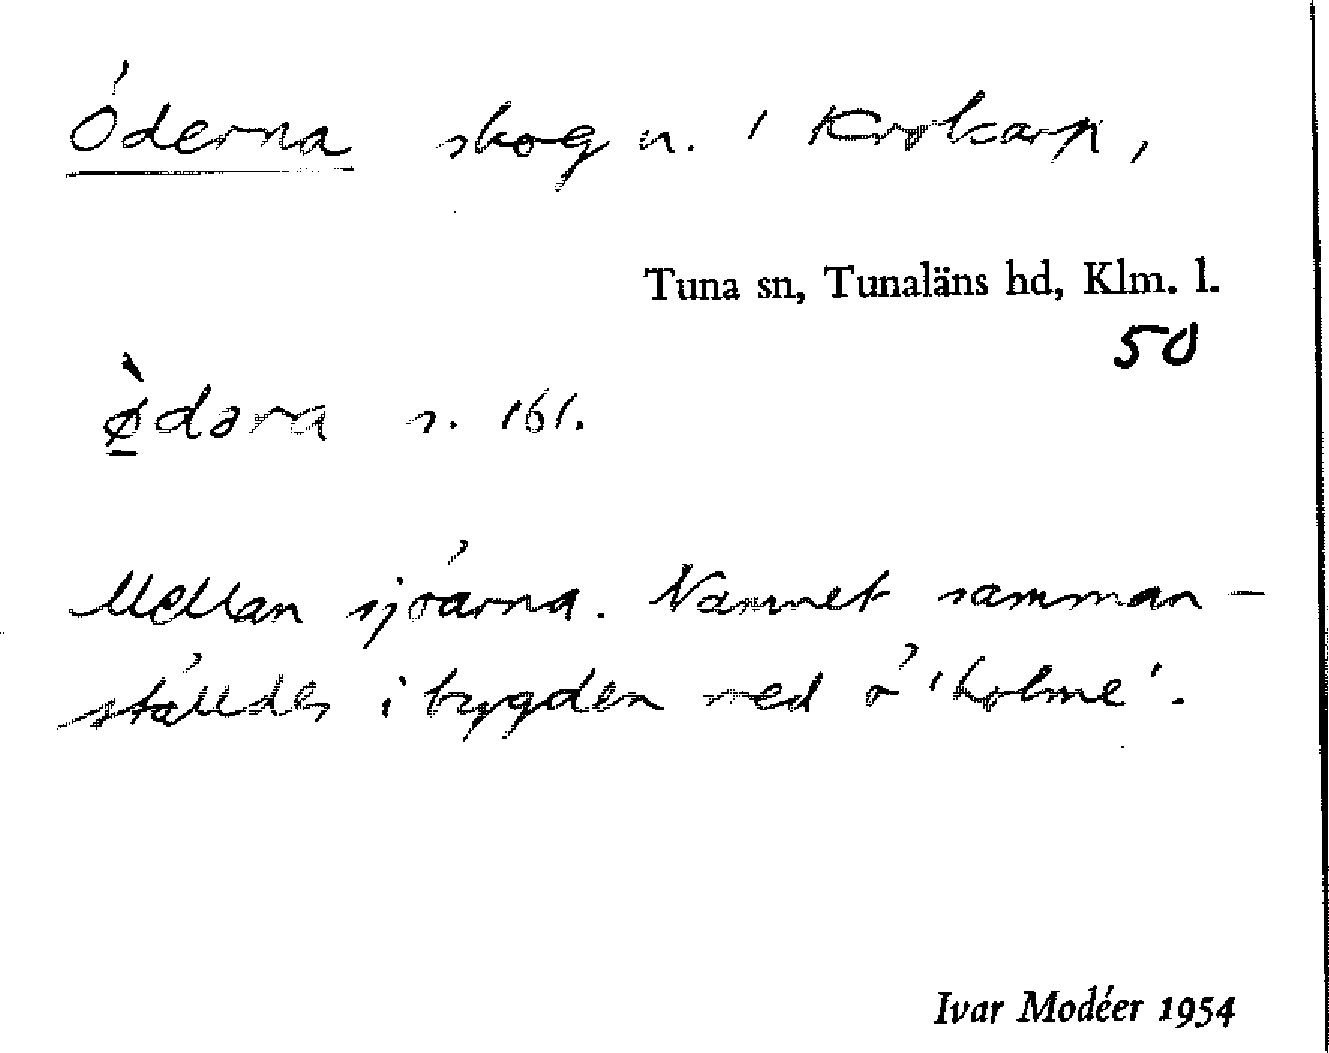 Öderna skog n. i Krokarp,
Tuna sn, Tunaläns hd, Klm. l.
50
ø̱̀dəra s. 161.
Mellan sjöarna. Namnet samman-
ställdes i bygden med ö 'holme'.
Ivar Modéer 1954